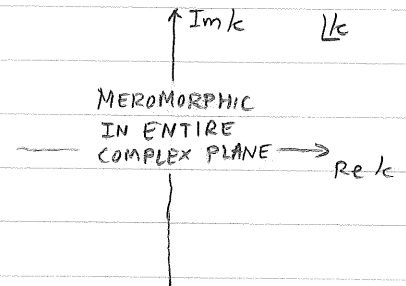 Im k
k
MEROMORPHIC
IN ENTIRE
COMPLEX PLANE
Re k